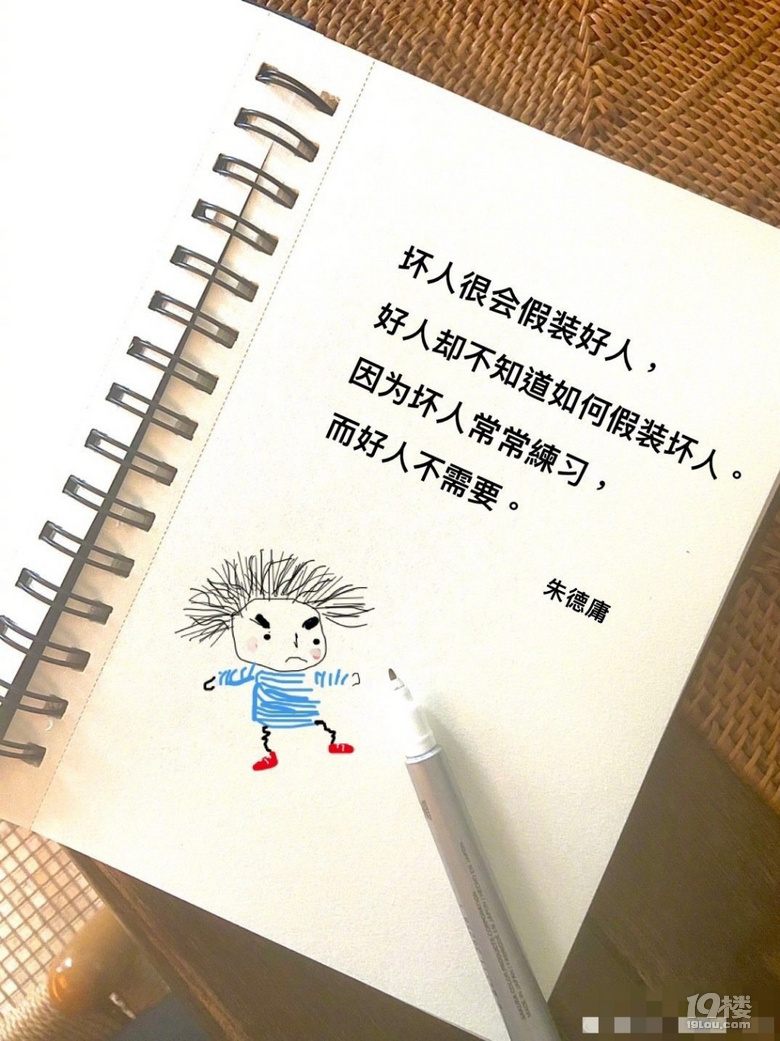 坏人很会假装好人，
好人却不知道如何假装坏人。
因为坏人常常練习，
而好人不需要。
朱德庸
19楼
19lou.com